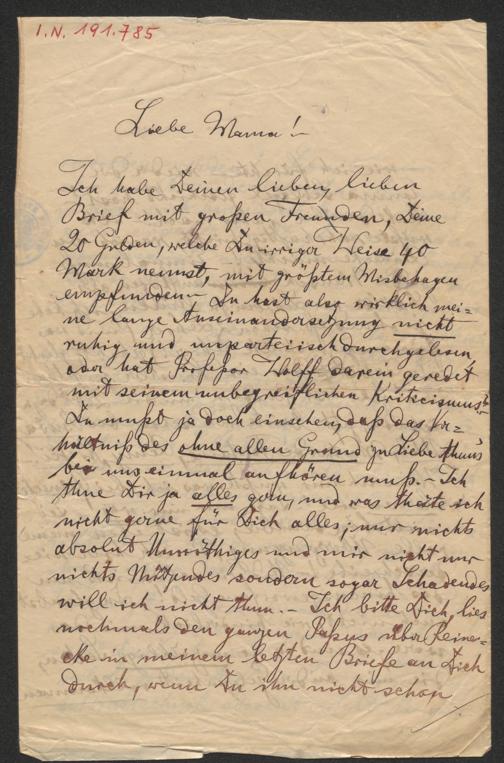 I.N. 191.785
Liebe Mama! –
Ich habe Deinen lieben, lieben
Brief mit großen Freunden, Deine
20 Gulden, welche Du irriger Weise 40
Mark nennst, mit größtem Misbehagen
empfunden – Du hast also wirklich mei=
ne lange Auseinandersetzung nicht
ruhig und unparteiisch durchgelesen,
oder hat Professor Wolff darein geredet
mit seinem unbegreiflichen Kriticismus?
Du mußt ja doch einsehen, daß das Ver=
hältniß des ohne allen Grund zu Liebe thun's
bei uns einmal aufhören muß. – Ich
thue Dir ja alles gern, und was thäte ich
nicht gerne für Dich alles; nur nichts
absolut Unnöthiges und mir nicht nur
nichts Nützendes sondern sogar Schadendes
will ich nicht thun. – Ich bitte Dich, lies
nochmals den ganzen Passus über Reine=
cke in meinem letzten Briefe an Dich
durch, wenn Du ihn nicht schon